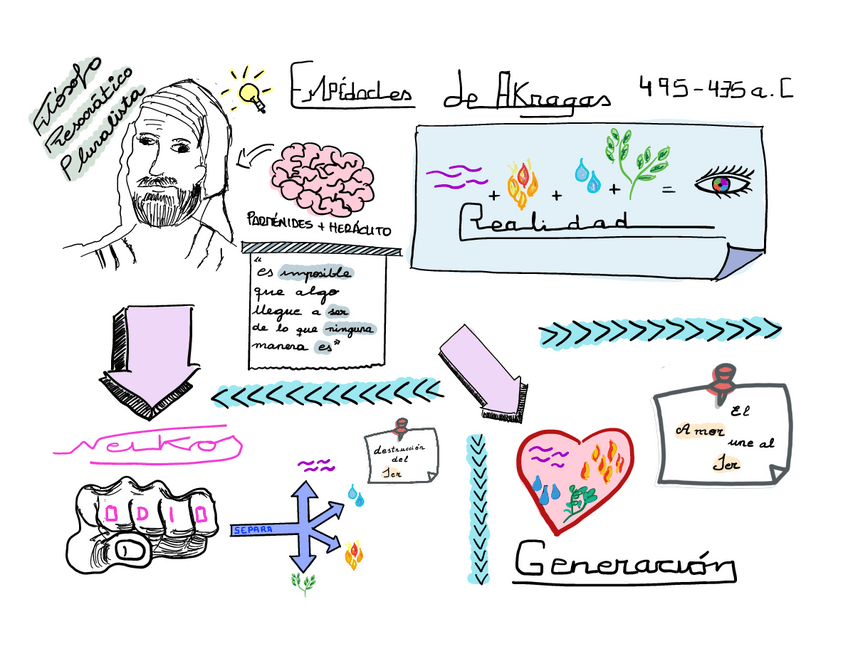 Filósofo
Presocrático
Pluralista
Empédocles de Akragas 495-435 a.C
PARMÉNIDES + HERÁCLITO
+ + + =
Realidad
"es imposible
que algo
llegue a ser
de lo que ninguna
manera es"
Neikos
ODIO
SEPARA
destrucción
del
Ser
El
Amor une al
Ser
Generación